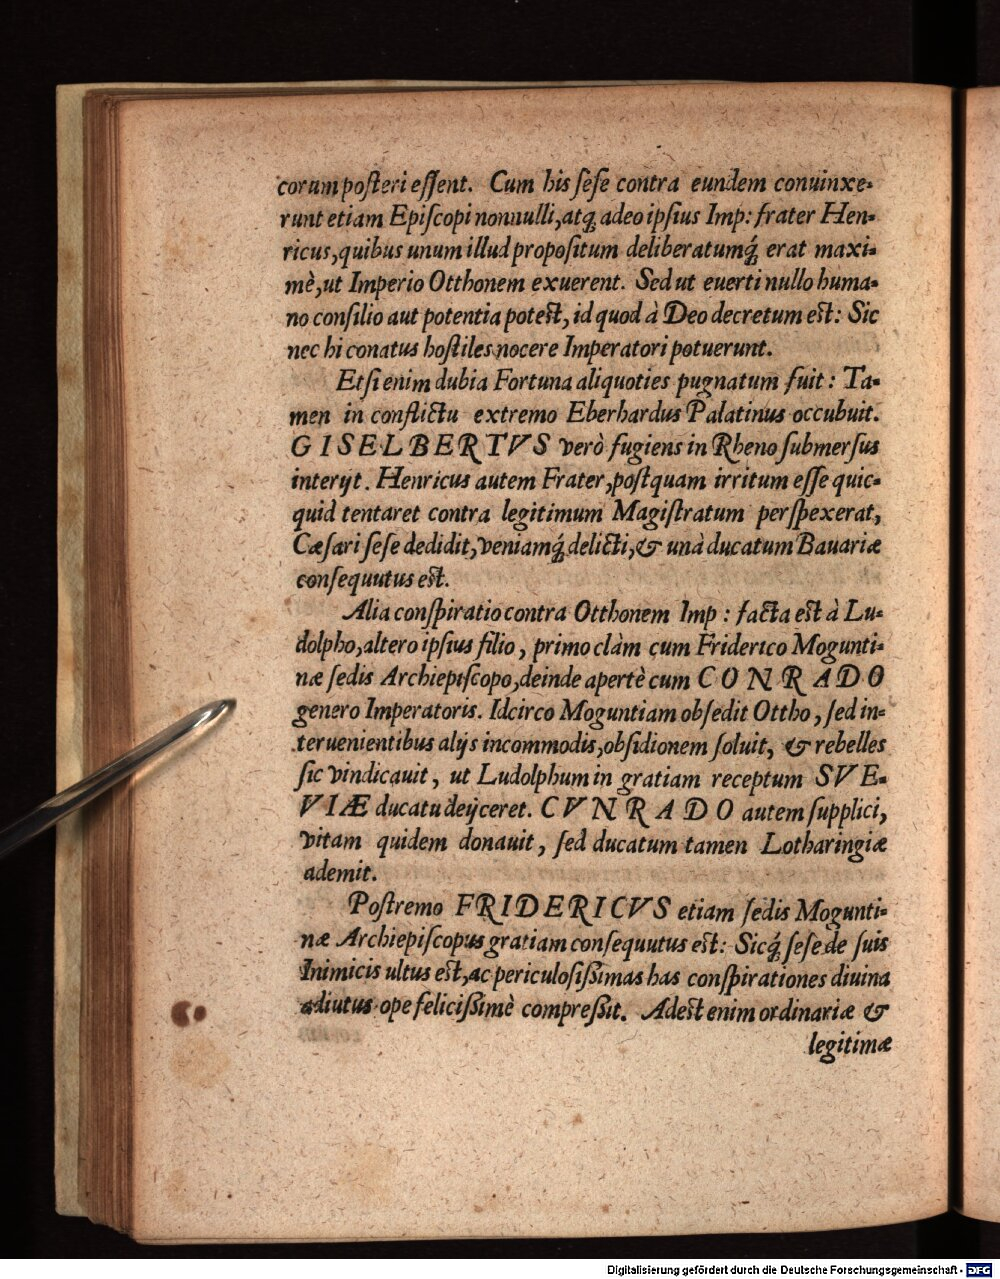 corum poſteri eſſent. Cum his ſeſe contra eundem conuinxe-
runt etiam Epiſcopi nonnulli, atq́; adeo ipſius Imp: frater Hen-
ricus, quibus unum illud propoſitum deliberatumq́; erat maxi-
mè, ut Imperio Otthonem exuerent. Sed ut euerti nullo huma-
no conſilio aut potentia poteſt, id quod à Deo decretum eſt: Sic
nec hi conatus hoſtiles nocere Imperatori potuerunt.
Etſi enim dubia Fortuna aliquoties pugnatum fuit: Ta-
men in conflictu extremo Eberhardus Palatinus occubuit.
GISELBERTVS verò fugiens in Rheno ſubmerſus
interijt. Henricus autem Frater, poſtquam irritum eſſe quic-
quid tentaret contra legitimum Magiſtratum perſpexerat,
Cæſari ſeſe dedidit, veniamq́; delicti, & unà ducatum Bauariæ
conſequutus eſt.
Alia conſpiratio contra Otthonem Imp: facta eſt à Lu-
dolpho, altero ipſius filio, primo clàm cum Friderico Mogunti-
næ ſedis Archiepiſcopo, deinde apertè cum CONRADO
genero Imperatoris. Idcirco Moguntiam obſedit Ottho, ſed in-
teruenientibus alijs incommodis, obſidionem ſoluit, & rebelles
ſic vindicauit, ut Ludolphum in gratiam receptum SVE-
VIÆ ducatu deijceret. CVNRADO autem ſupplici,
vitam quidem donauit, ſed ducatum tamen Lotharingiæ
ademit.
Poſtremo FRIDERICVS etiam ſedis Mogunti-
næ Archiepiſcopus gratiam conſequutus eſt: Sicq́; ſeſe de ſuis
Inimicis ultus eſt, ac periculoſiſsimas has conſpirationes diuina
adiutus ope feliciſsimè compreſsit. Adeſt enim ordinariæ &
legitimæ
Digitalisierung gefördert durch die Deutsche Forschungsgemeinschaft - DFG